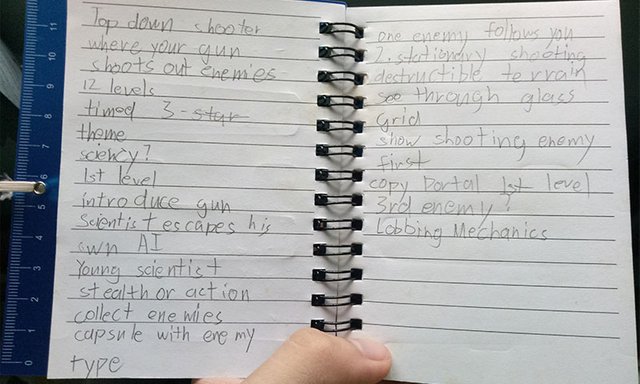 Top down shooter
where your gun
shoots out enemies
12 levels
timed 3-star
theme
sciency?
1st level
introduce gun
scientist escapes his
own AI
Young scientist
stealth or action
collect enemies
capsule with enemy
type
one enemy follows you
2. stationary shooting
destructible terrain
see through glass
grid
show shooting enemy
first
copy Portal 1st level
3rd enemy?
Lobbing Mechanics
11
10
9
8
7
6
5
4
3
2
1
0